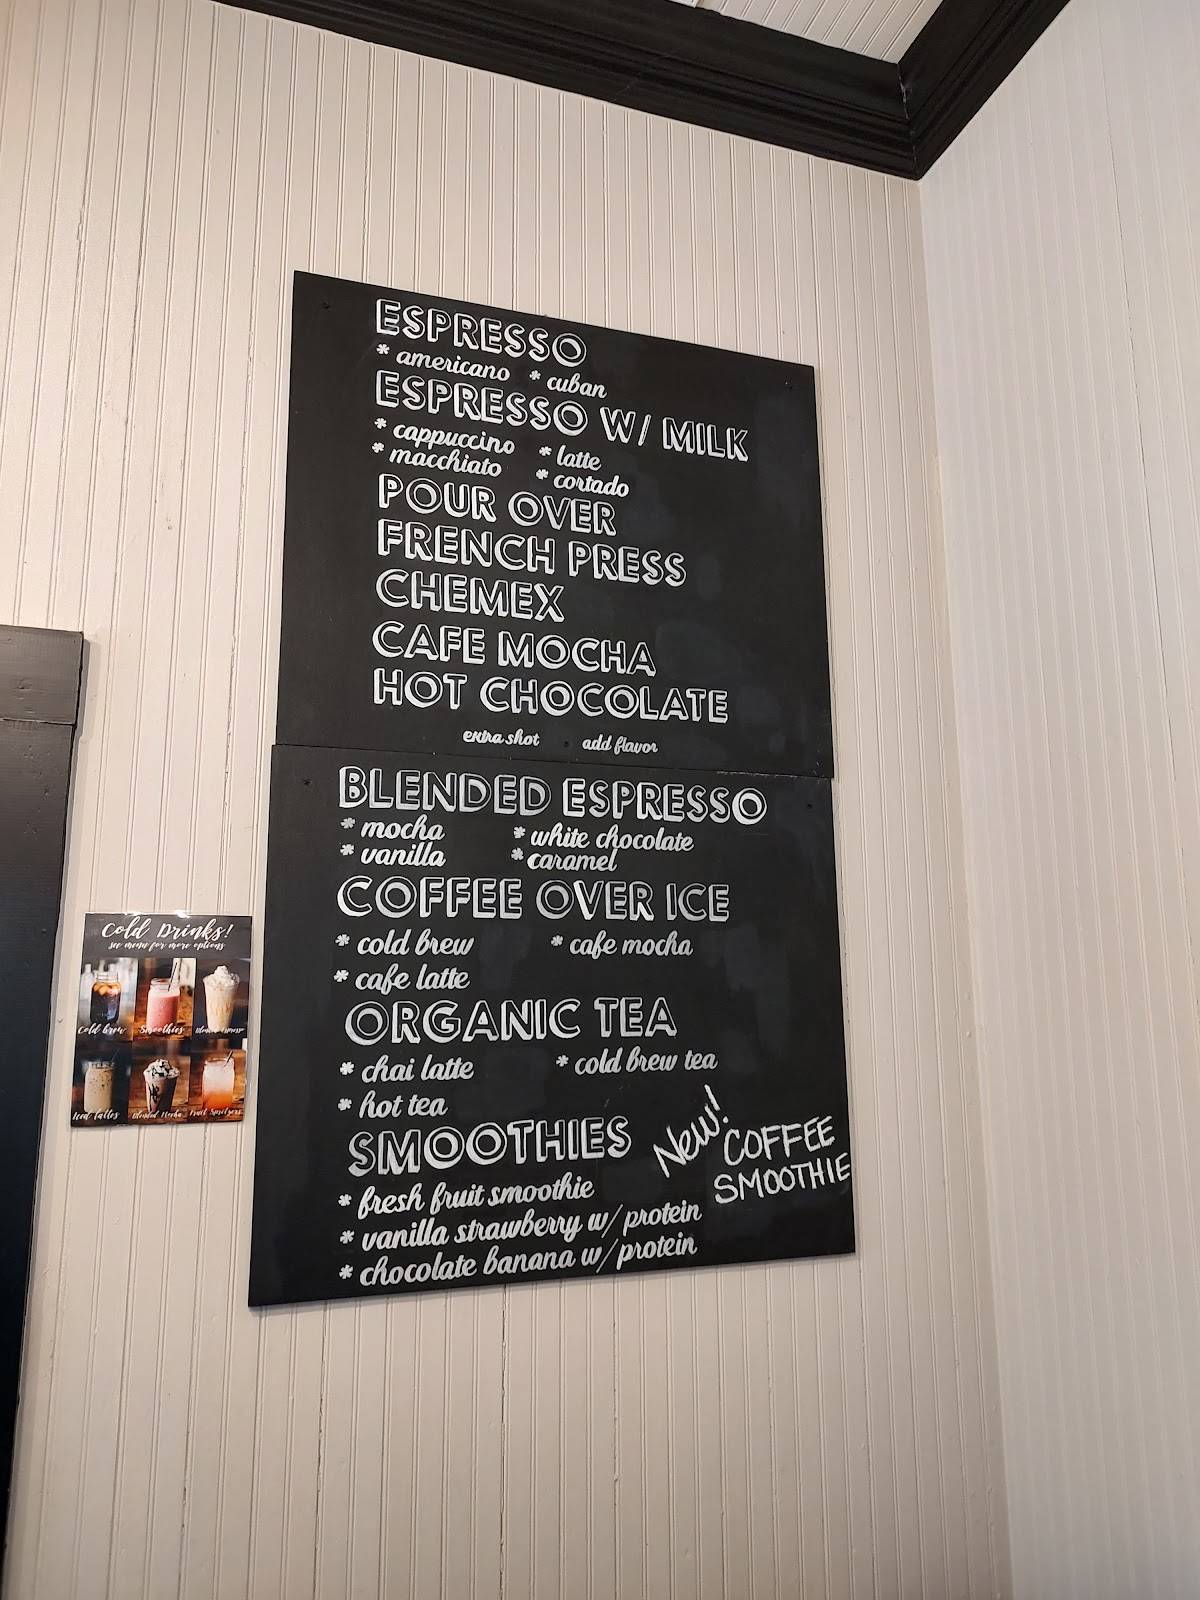 ESPRESSO
* americano * cuban
ESPRESSO W/ MILK
* cappuccino * latte
* macchiato * cortado
POUR OVER
FRENCH PRESS
CHEMEX
CAFE MOCHA
HOT CHOCOLATE
extra shot add flavor
BLENDED ESPRESSO
* mocha * white chocolate
* vanilla * caramel
COFFEE OVER ICE
* cold brew * cafe mocha
* cafe latte
ORGANIC TEA
* chai latte * cold brew tea
* hot tea
SMOOTHIES
New! COFFEE
SMOOTHIE
* fresh fruit smoothie
* vanilla strawberry w/ protein
* chocolate banana w/ protein
Cold Drinks!
see menu for more options
Cold brew Smoothies Blended espresso
Iced lattes Blended Mocha Fruit Spritzers